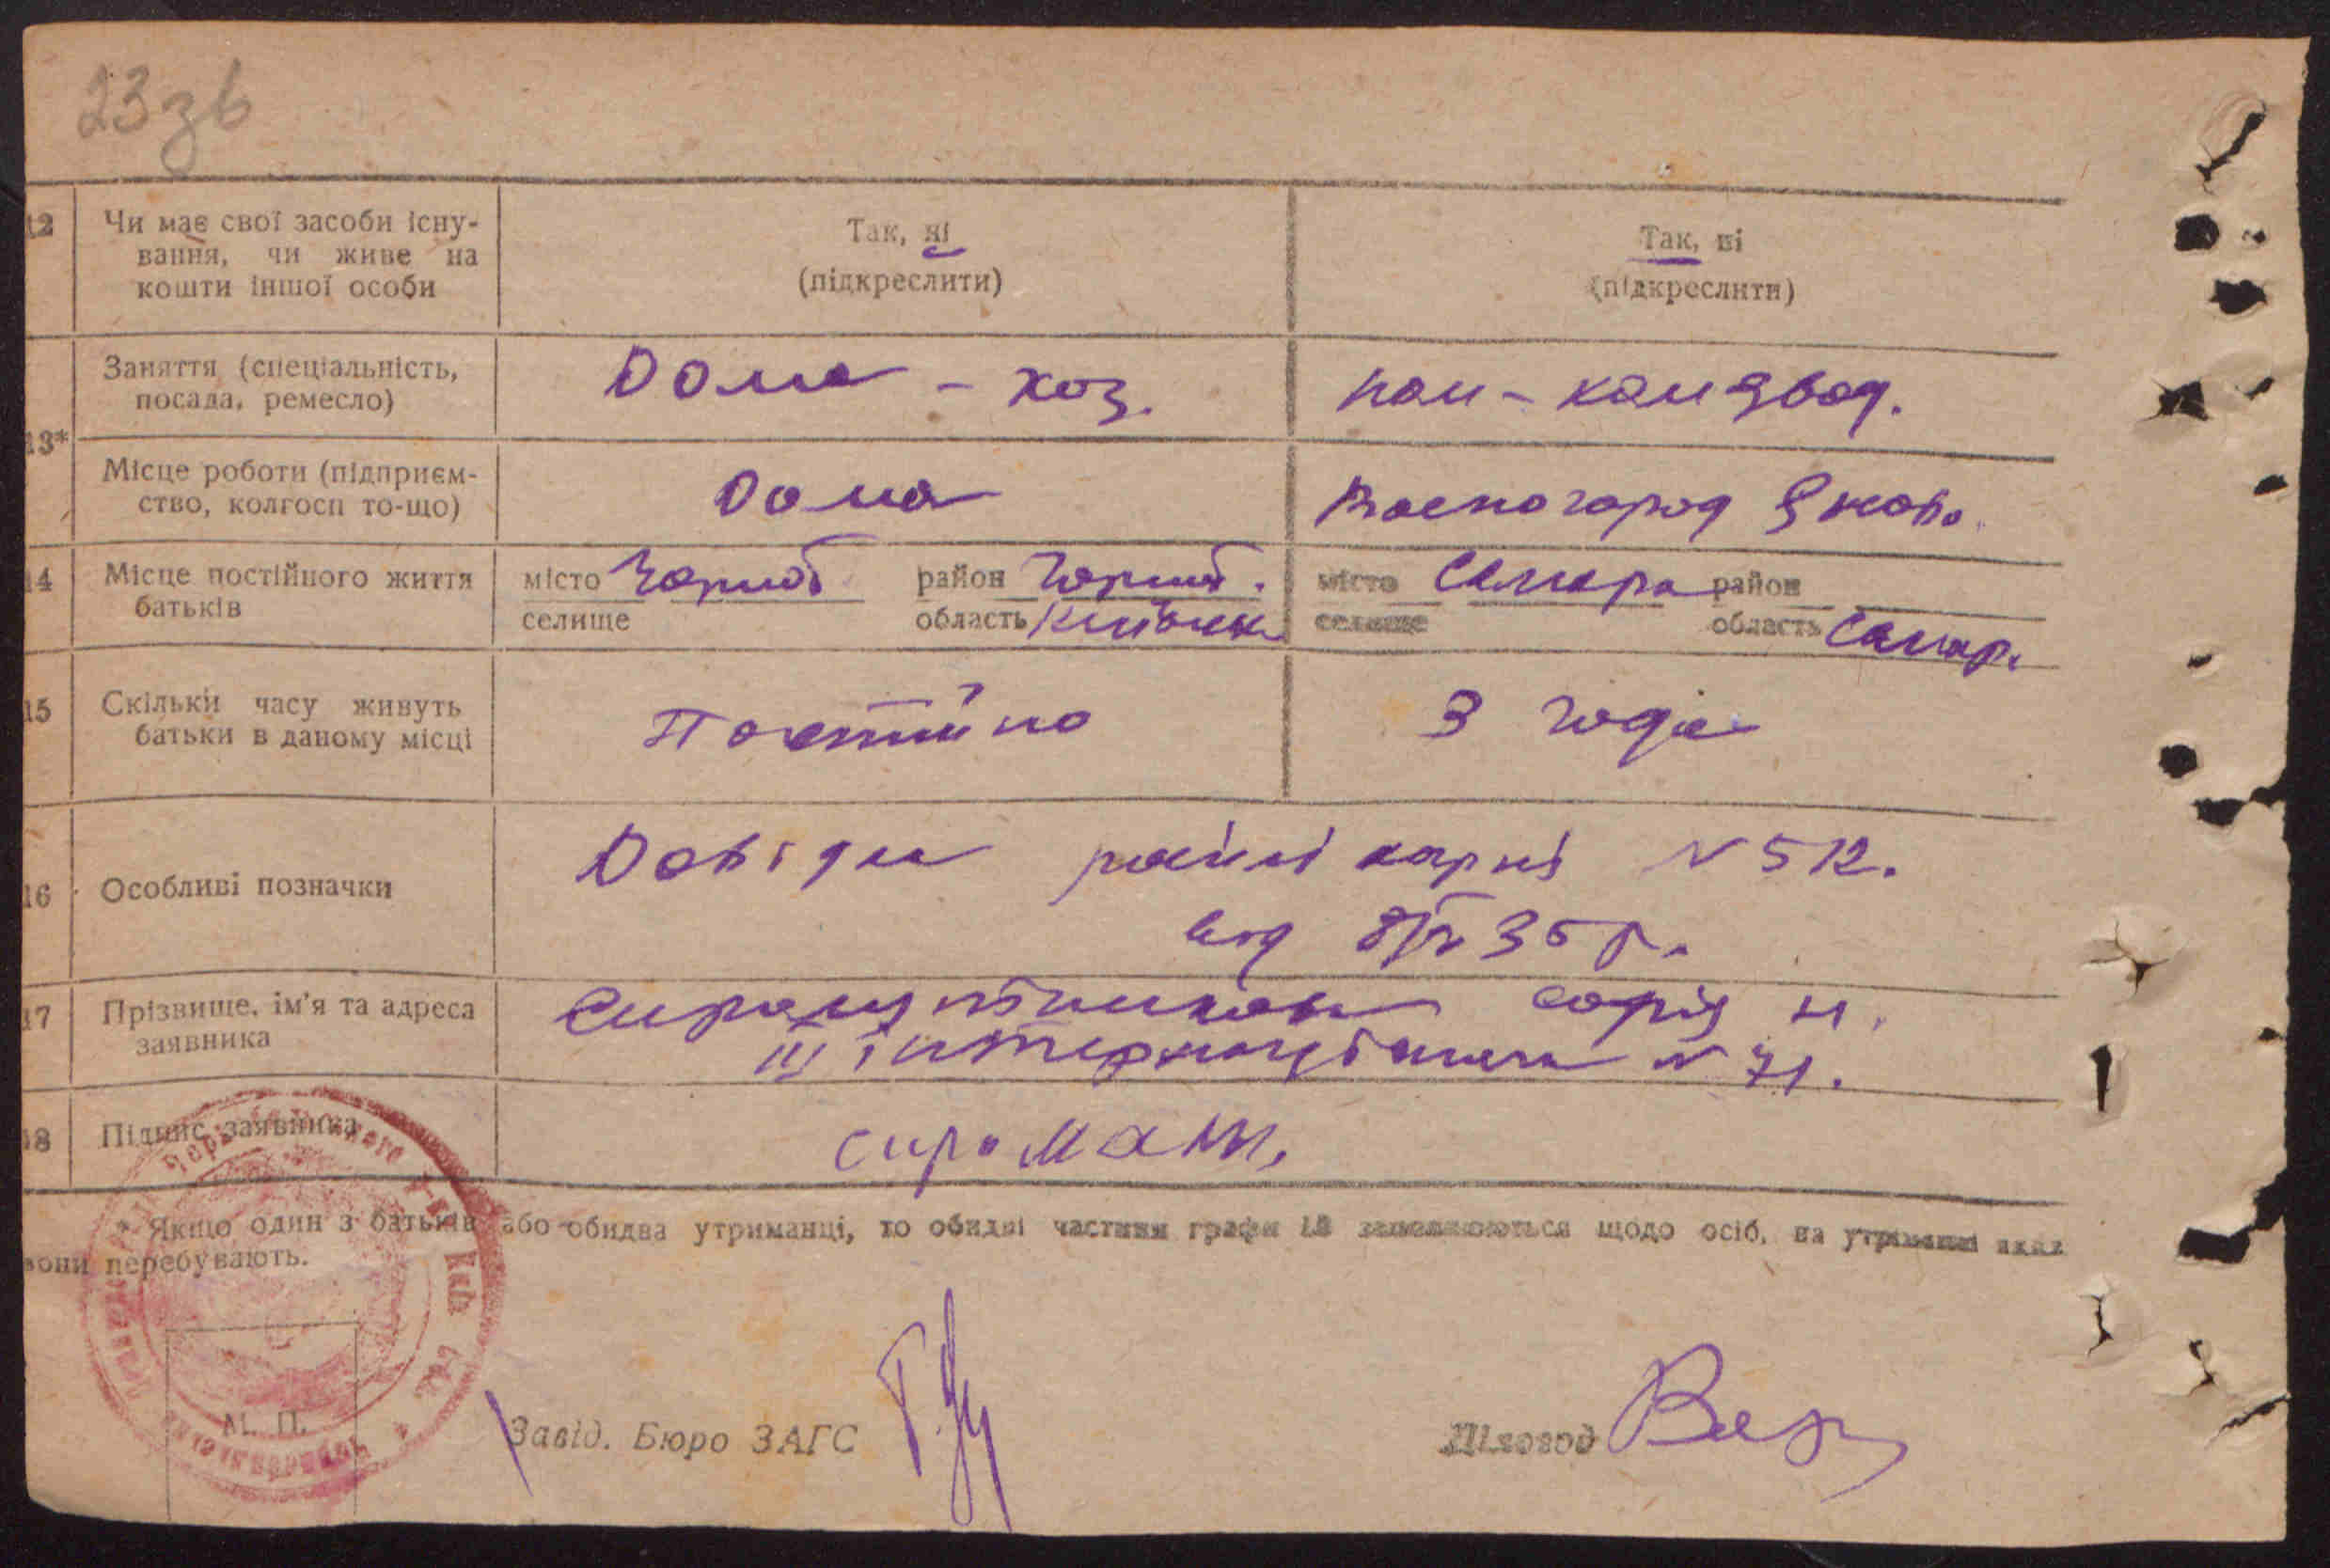 23зв
12 Чи має свої засоби існу-
вання, чи живе на
кошти іншої особи
Так, ні
(підкреслити)
Так, ні
(підкреслити)
13*
Заняття (спеціальність,
посада, ремесло)
Дома - хоз.
пом-ком
Місце роботи (підприєм-
ство, колгосп то-що)
Дома
14 Місце постійного життя
батьків
місто Чорноб район Чорноб.
селище область Київськ
місто Самара район
селище область Самар.
15 Скільки часу живуть
батьки в даному місці
Постійно
3 года
16 Особливі позначки
Довідка N 512.
від 35 р.
17 Прізвище, ім'я та адреса
заявника
Софія М.
III інтернаціонала N 71.
18 Підпис заявника
* Якщо один з батьків або обидва утриманці, то обидві частини графи 13 заповнюються щодо осіб, на утриманні яких
вони перебувають.
М. П.
Завід. Бюро ЗАГС
Діловод